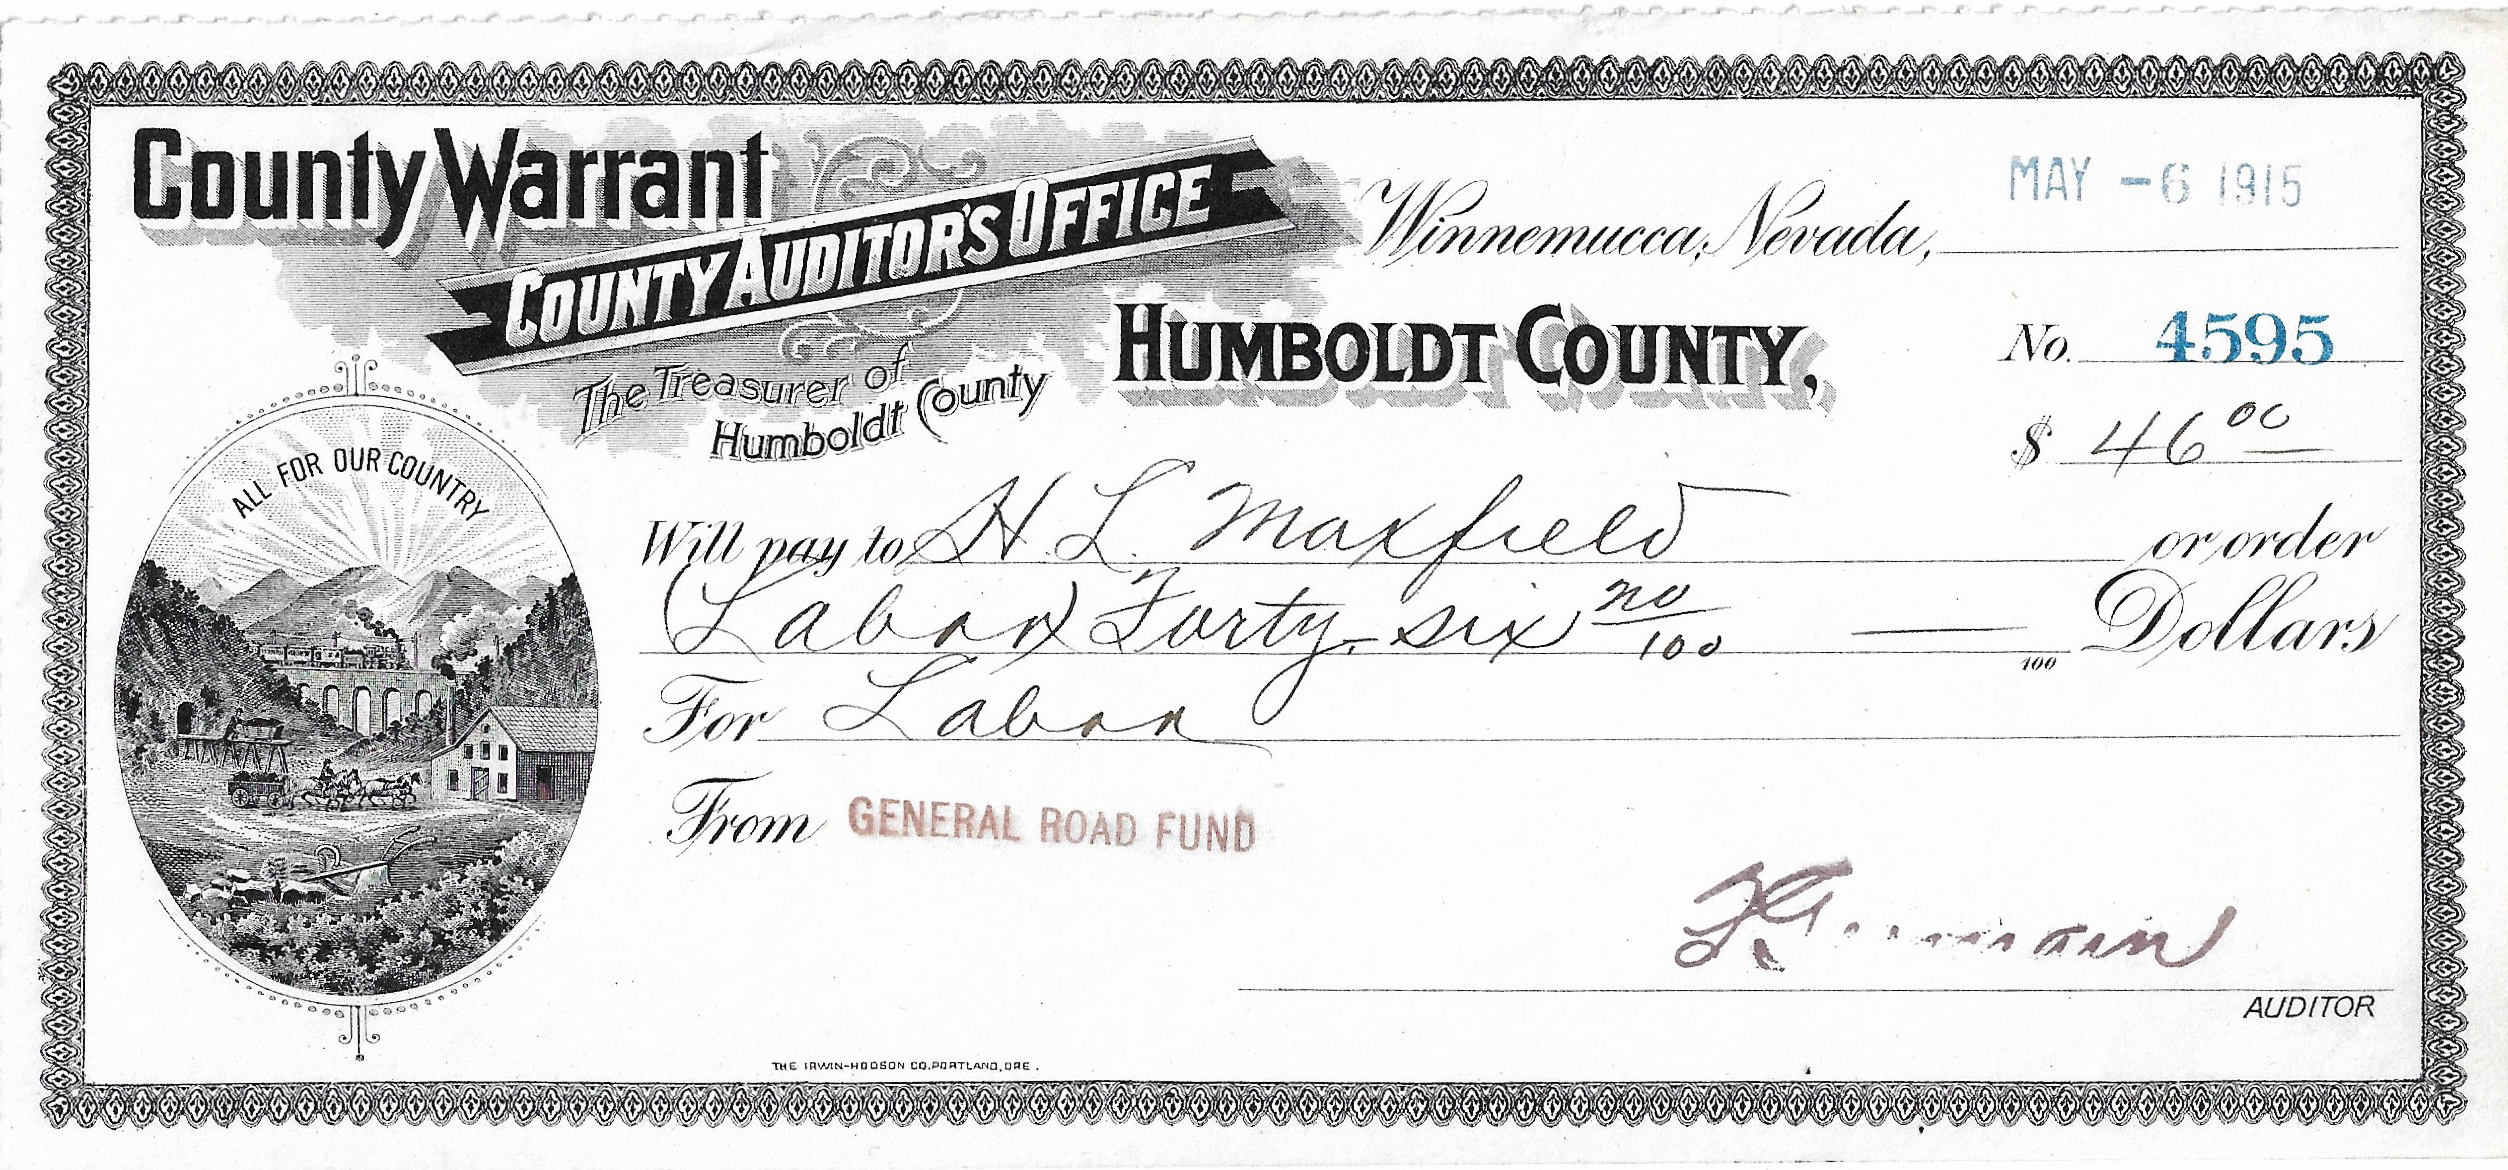 County Warrant
COUNTY AUDITOR'S OFFICE
The Treasurer of
Humboldt County
Winnemucca, Nevada, MAY -6 1915
HUMBOLDT COUNTY,
No. 4595
$ 46 00
ALL FOR OUR COUNTRY
Will pay to H. L. Maxfield or order
(Labor) Forty-six no/100 100 Dollars
For Labor
From GENERAL ROAD FUND
AUDITOR
THE IRWIN-HODSON CO. PORTLAND, ORE.